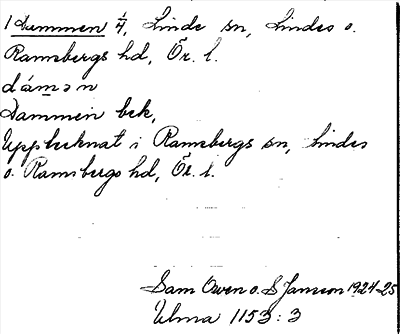 1 Dammen 1/4, Linde sn, Lindes o.
Ramsbergs hd, Ör. l.
dám̲ə n
Dammen bek,
Upptecknat i Ramsbergs sn, Lindes
o. Ramsbergs hd, Ör. l.
Sam Owen o. S Janson 1924-25
Ulma 1153:3